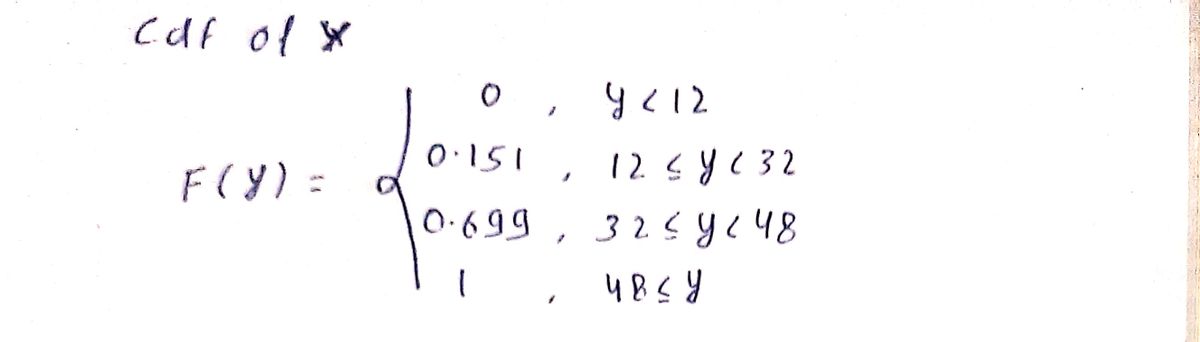 Cdf of Y
0 , y < 12
0.151 , 12 ≤ y < 32
F(y) =
0.699 , 32 ≤ y < 48
1 , 48 ≤ y